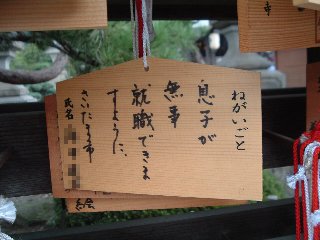 ねがいごと
息子が
無事
就職できま
すように、
さいたま市
氏名